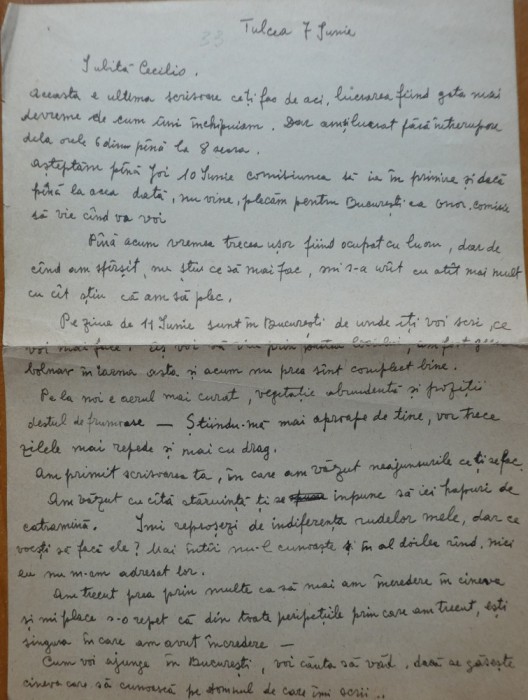 33
Tulcea 7 Iunie
Iubită Cecilio.
Aceasta e ultima scrisoare ce-ți fac de aci, lucrarea fiind gata mai
devreme de cum îmi închipuiam. Dar am lucrat fără întrerupere
dela orele 6 dim. pînă la 8 seara.
Așteptăm pînă Joi 10 Iunie comisiunea să ia în primire și dacă
pînă la acea dată, nu vine, plecăm pentru București ca onor. comisie
să vie cînd va voi
Pînă acum vremea trecea ușor fiind ocupat cu lucru, dar de
cînd am sfîrșit, nu știu ce să mai fac, mi s-a urît cu atît mai mult
cu cît știu că am să plec.
Pe ziua de 11 Iunie sunt în București de unde îți voi scri, ce
voi mai face. voi să prin pentru am fost
bolnav în iarna asta și acum nu prea sînt complect bine.
Pe la noi e aerul mai curat, vegetație abundentă și poziții
destul de frumoase — Știindu-mă mai aproape de tine, vor trece
zilele mai repede și mai cu drag.
Am primit scrisoarea ta, în care am văzut neajunsurile ce ți se fac.
Am văzut cu cîtă stăruință ți se impune să iei hapuri de
catramină. Îmi reproșezi de indiferența rudelor mele, dar ce
voești să facă ele? Mai întîi nu-l cunoaște și în al doilea rînd, nici
eu nu m-am adresat lor.
Am trecut prea prin multe ca să mai am încredere în cineva
și-mi place s-o repet că din toate peripețiile prin care am trecut, ești
singura în care am avut încredere —
Cum voi ajunge în București, voi căuta să văd, dacă se găsește
cineva care să cunoască pe Domnul de care îmi scrii..